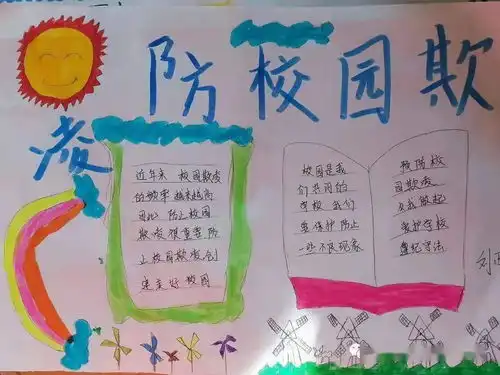 防校园欺
凌
近年来 校园欺凌
的频率越来越高
因此 防止校园
欺凌很重要 防
止校园欺凌 创
建美好校园
校园是我
们共同的
学校 我们
要保护防止
一些不良现象
预防校
园欺凌
从我做起
爱护学校
遵纪守法
刘